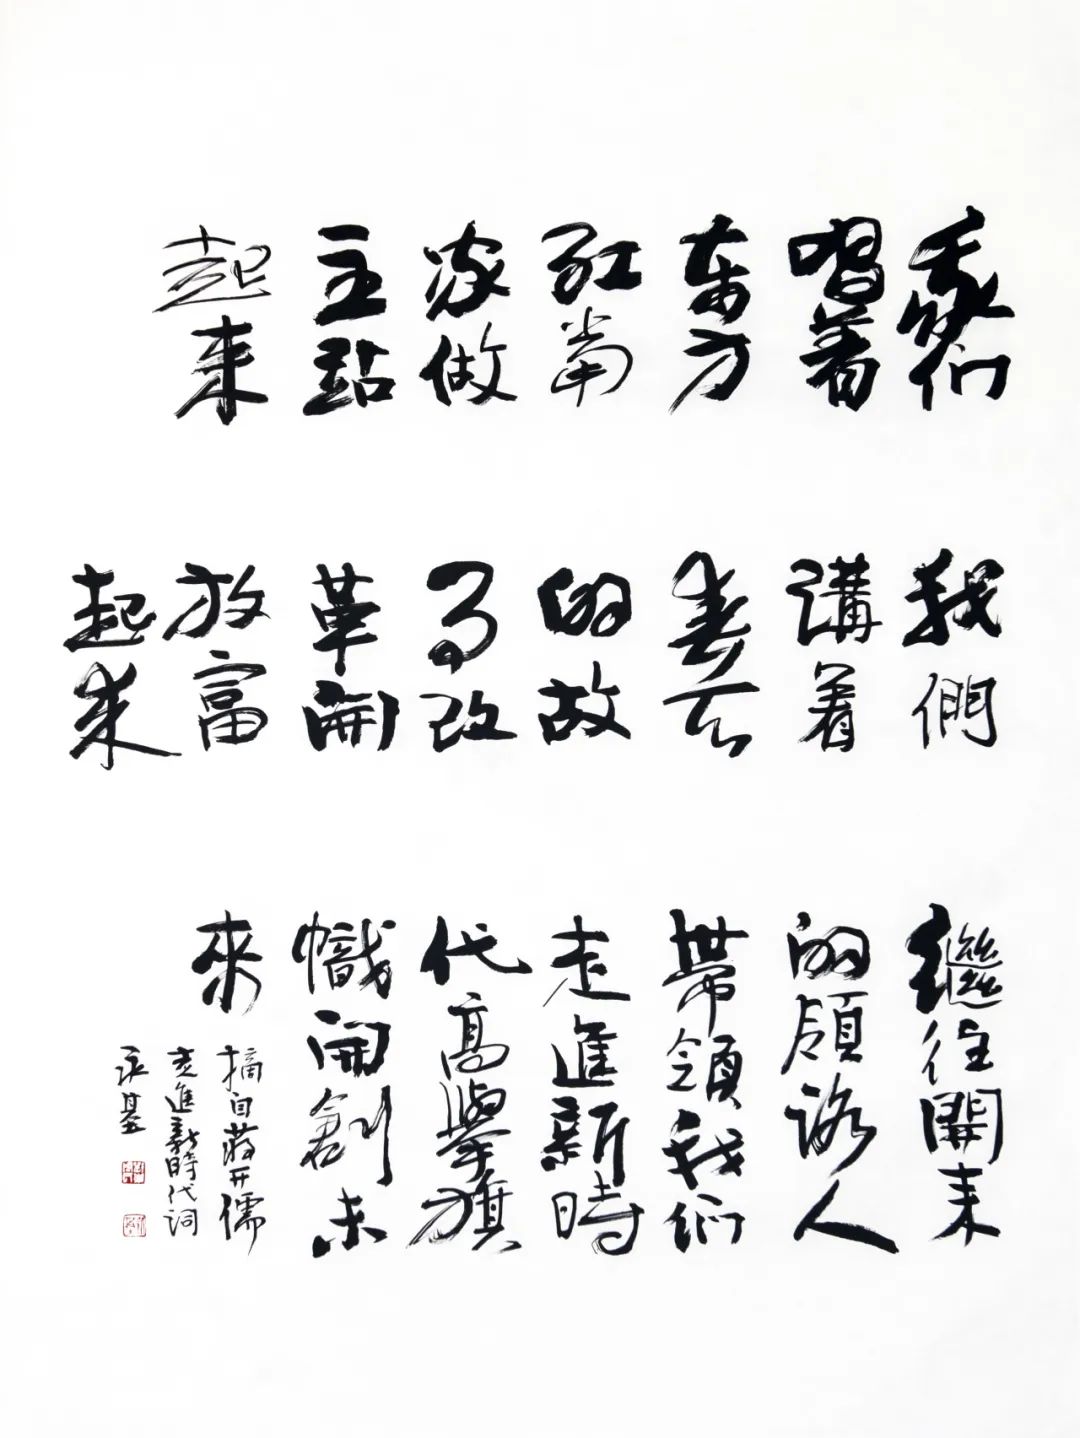 我们
唱着
東方
红當
家做
主站
起来
我們
講着
春天
的故
事改
革開
放富
起来
繼往開来
的領路人
帶領我们
走進新時
代高舉旗
幟開創未
來
摘自蒋开儒
走進新時代词
永基